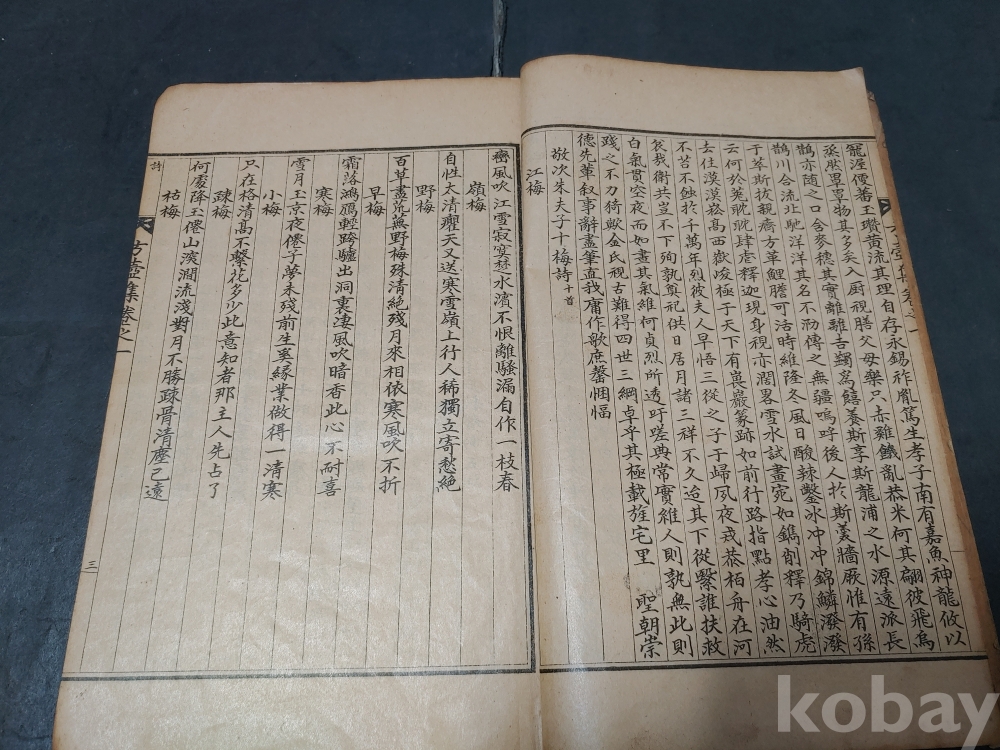 寵涯儇蕃玉瓚黄流其理自存永锡祚胤篤生孝子南有嘉魚神龍攸以
烝然罩罩物其多矣入厨視膳父母樂只赤雞鐖亂恭米何其翩彼飛鳥
鵲亦隨之口含參穗其實離離吉蠲爲饎養斯享斯龍浦之水源遠派長
鵲川合流北馳洋洋其名不泐傳之無疆嗚呼後人於斯羹牆厥惟有孫
于萃斯拔親癠方革鯉膾可活時維隆冬風日酸辣鑿冰冲冲錦鱗潑潑
云何於菟耽耽肆虐釋迦現身視亦濶畧雪水試畫宛如鐫削釋乃騎虎
去仕漠漠崧高西嶽峻極于天下有異巖篆跡如前行路指點孝心油然
不苔不蝕於千萬年烈彼夫人早悟三從之子于歸夙夜戎恭柏舟在河
矣我衛共豈不下殉執奠祀供日居月諸三祥不久迨其下從繄誰扶救
踐之不刀猗歟金氏視古難得四世三綱卓乎其極載旌宅里 聖朝崇
白氣貫空夜而如晝其氣維何貞烈所透吁嗟典常實維人則孰無此則
德先輩叙事辭盡筆直我庸作歌庶罄悃愊
敬次朱夫子十梅詩十首
江梅
癠風吹江雪寂寞楚水濱不恨離騷漏自作一枝春
嶺梅
自性太清癯天又送寒雪嶺上行人稀獨立寄愁絶
野梅
百草盡荒蕪野梅殊清絶殘月來相依寒風吹不折
早梅
霜落鴻鴈輕跨驢出洞裏淒風吹暗香此心不耐喜
寒梅
雪月玉京夜僊子夢未殘前生奚緣業做得一清寒
小梅
只在格清高不繫花多少此意知者那主人先占了
疎梅
何處降玉僊山滾澗流淺對月不勝疎骨清塵已遠
枯梅
詩
集卷之一
三
kobay